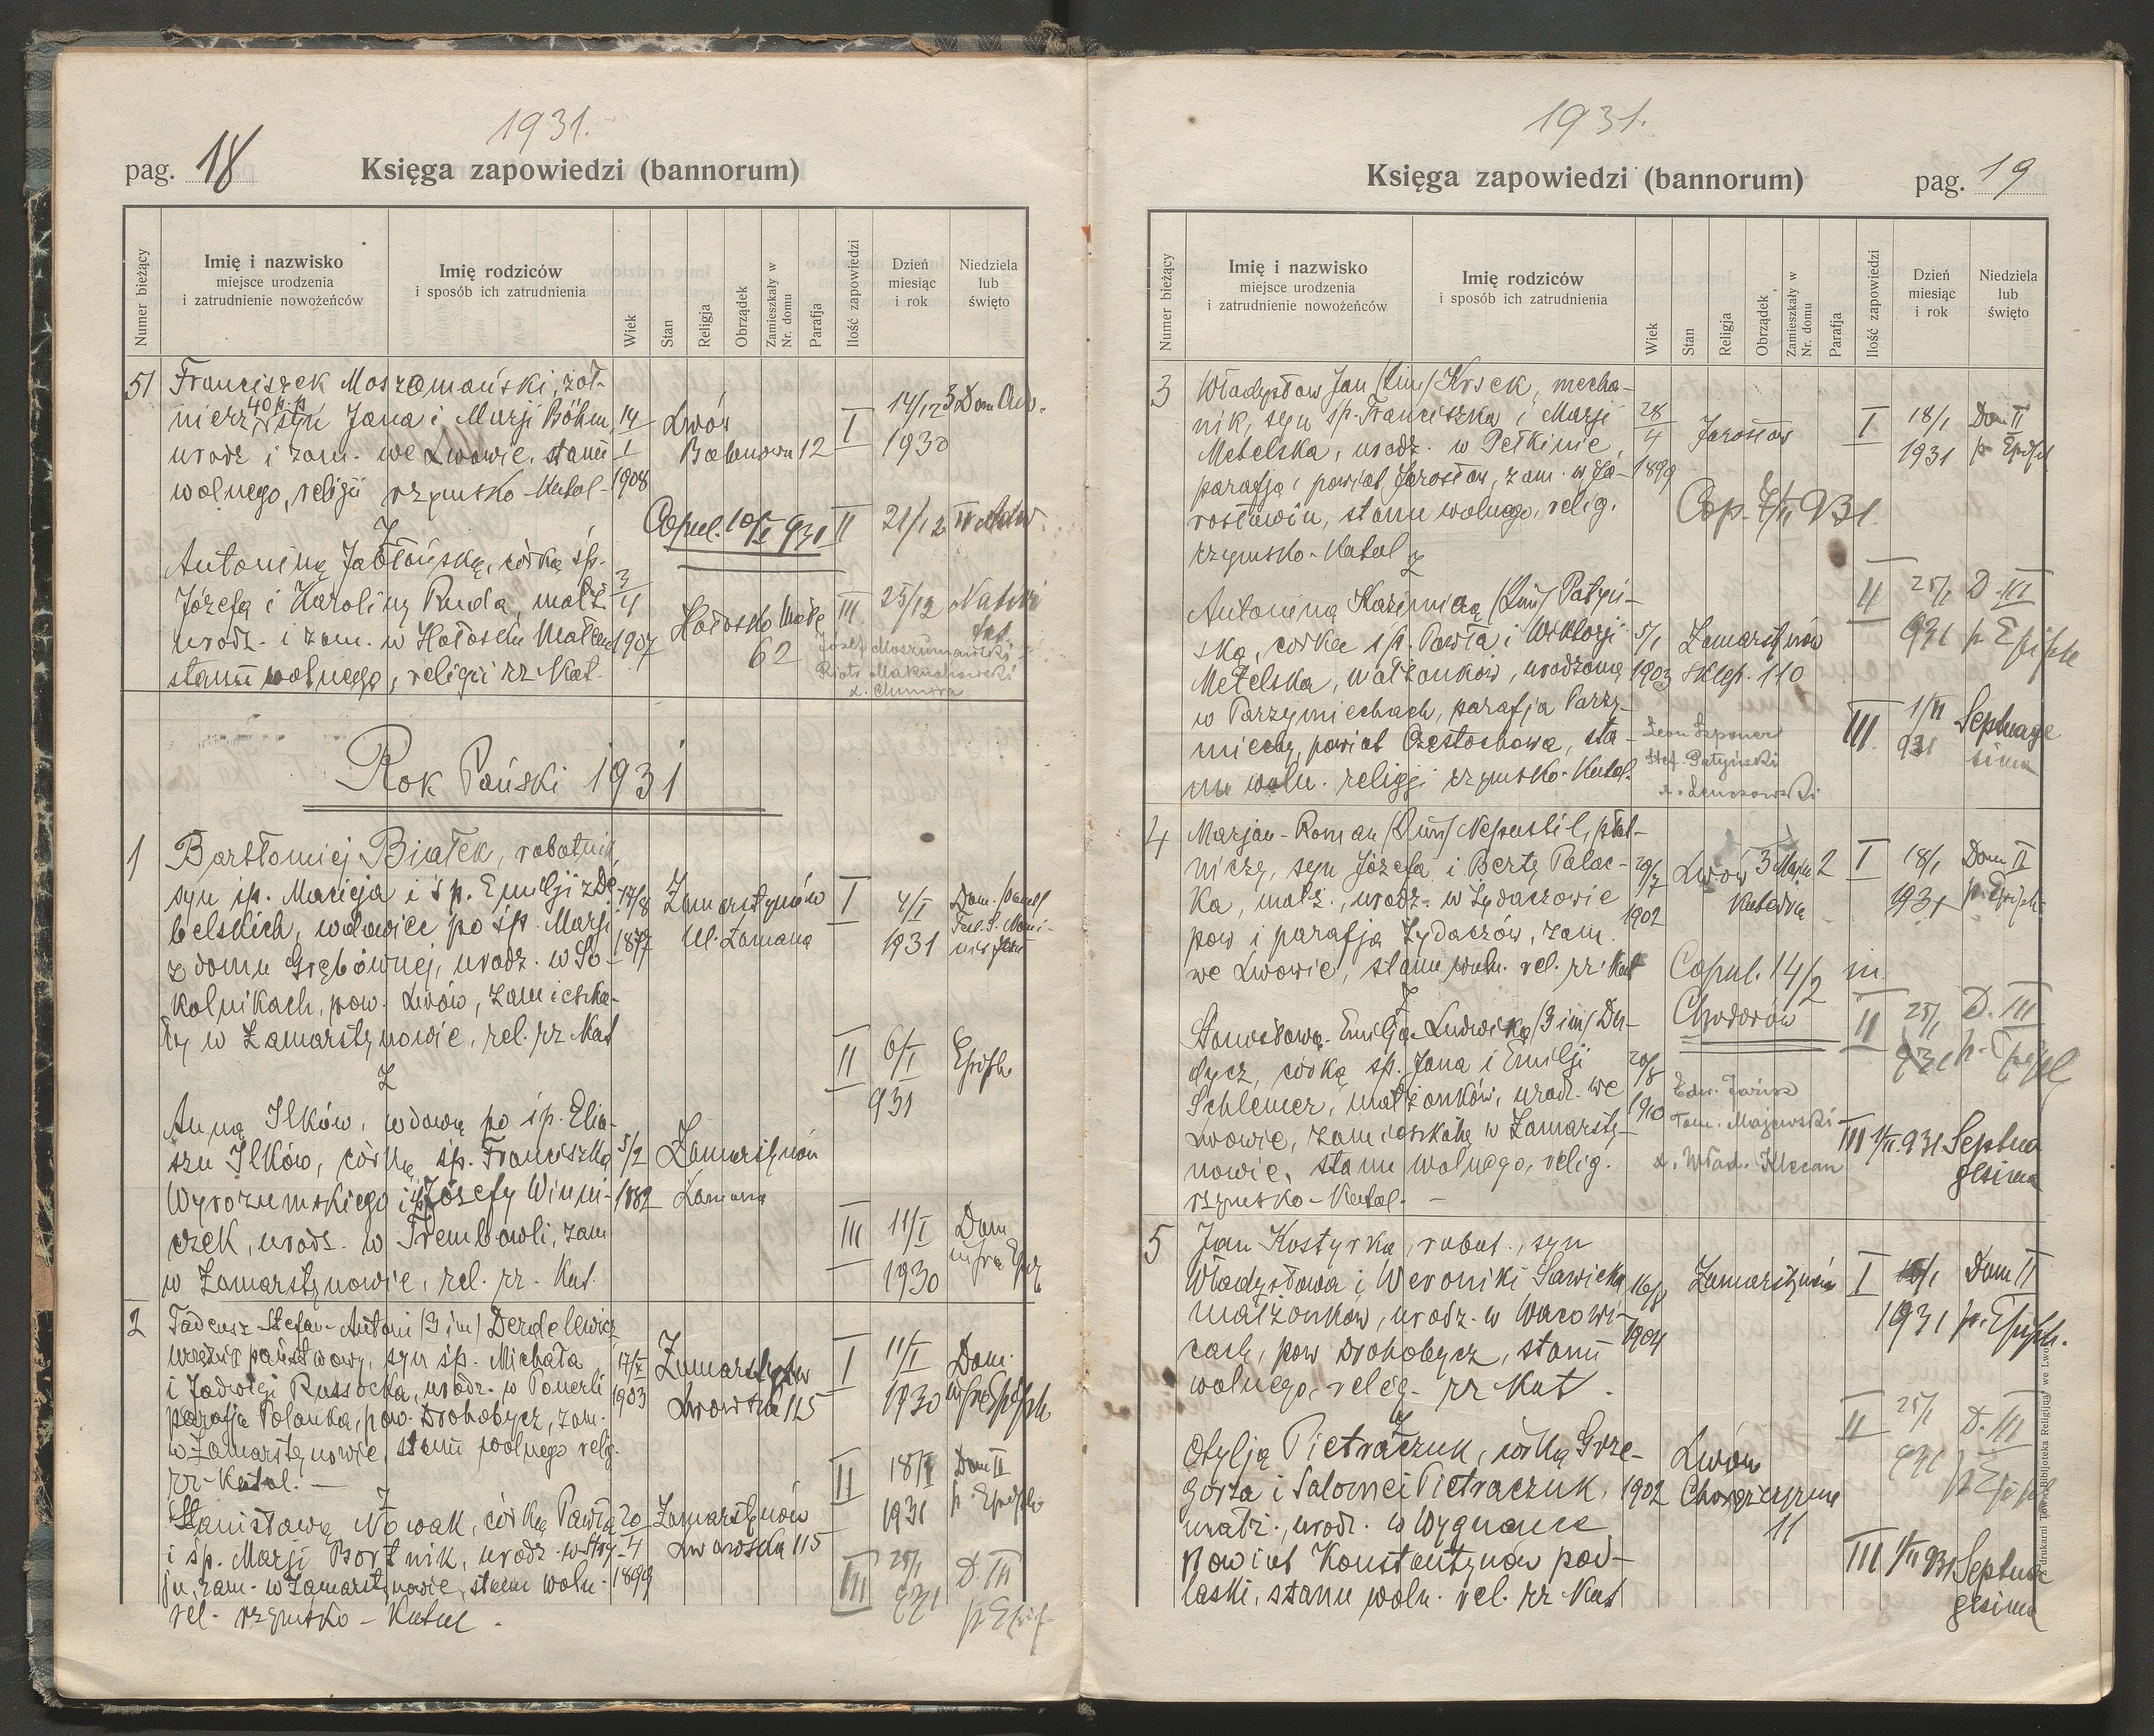 1931.
pag. 18
Księga zapowiedzi (bannorum)
Numer bieżący
Imię i nazwisko
miejsce urodzenia
i zatrudnienie nowożeńców
Imię rodziców
i sposób ich zatrudnienia
Wiek
Stan
Religja
Obrządek
Zamieszkały w
Nr. domu
Parafja
Ilość zapowiedzi
Dzień
miesiąc
i rok
Niedziela
lub
święto
51
Franciszek Moszomański, żoł-
nierz 40 p.p, syn Jana i Marji Böhm,
urodz i zam. we Lwowie, stanu
wolnego, religii rzymsko-Katol-
14/I 1908
Lwów
12
I 14/12 1930
3 Dom Adw.
Z
Copul. 10/I 931
II 21/12
IV Adw.
Antoniną Jabłońską, córką śp.
Józefa i Karoliny Ruda, małż
urodz. i zam. w Hołosku Małem
stanu wolnego, religii rz Kat.
3/4 1907
Hołosko Małe
62
III 25/12
Józef Moszumański
Piotr Makuchowski
Rok Pański 1931
1
Barstłomiej Białek, robotnik,
syn śp. Macieja i śp. Emilji z Dę-
belskich, wdowiec po śp. Marji
z domu Grębównej, urodz. w So-
kolnikach, pow. Lwów, zamieszka-
ły w Zamarstynowie, rel. rz Kat
17/8 1877
Zamarstynów
Ul. Zamana
I 4/I 1931
Z
II 6/I 931
Epiph
Anną Ilków, wdową po śp. Elia-
szu Ilków, córką śp. Franciszka
Wyrozumskiego i śp Józefy Winni-
czek, urodz. w Trembowli, zam
w Zamarstynowie, rel. rz. Kat.
5/2 1882
Zamarstynów
Zamana
III 11/I 1930
Dom infra
2
Tadeusz-Stefan-Antoni (3 im) Derdelewicz
państwowy, syn śp. Michała
i Jadwigi Russocka, urodz. w
parafja Polanka, pow. Drohobycz, zam.
w Zamarstynowie, stanu wolnego relig.
rz-Katol. —
17/V 1903
Zamarstynów
Lwowska 115
I 11/I 1930
Dom. infra Epiph
Z
II 18/I 1931
Dom II p. Epiph
Stanisławą Nowak, córką Pawła
i śp. Marji Bortnik, urodz. w Stry-
ju, zam. w Zamarstynowie, stanu woln.
rel. rzymsko-Katol.
20/4 1899
Zamarstynów
Lwowska 115
III 25/1 931
D. III
p Epif
1931.
Księga zapowiedzi (bannorum)
pag. 19
Numer bieżący
Imię i nazwisko
miejsce urodzenia
i zatrudnienie nowożeńców
Imię rodziców
i sposób ich zatrudnienia
Wiek
Stan
Religja
Obrządek
Zamieszkały w
Nr. domu
Parafja
Ilość zapowiedzi
Dzień
miesiąc
i rok
Niedziela
lub
święto
3
Władysław Jan (2im) Krsek, mecha-
nik, syn śp. Franciszka i Marji
Metelska, urodz. w Pełkinie,
parafja i powiat Jarosław, zam. w Ja-
rosławiu, stanu wolnego, relig.
rzymsko-Katol
28/4 1899
Jarosław
I 18/1 1931
Dom II p Epiph
Cop. 7/II 931
Z
Antoniną Kazimierą (2im) Patyń-
ską, córką śp. Pawła i Wiktorji
Metelska, małżonków, urodzoną
w Parzymiechach, parafja Parzy-
miechy, powiat Częstochowa, sta-
nu woln. religji rzymsko-Katol.
5/1 1903
Zamarstynów
sklep. 110
II 25/1 931
D. III
p Epiph
III 1/II 931
Septuage
sima
Leon
Stef. Patyński
4
Marjan-Roman (2im) Nepustil, płat-
niczy, syn Józefa i Berty Palac-
ka, małż., urodz. w Żydaczowie
pow i parafja Żydaczów, zam.
we Lwowie, stanu woln. rel. rz. Kat
29/7 1902
Lwów 3 Maja 2
Katedra
I 18/1 1931
Dom II
p. Epiph
Copul. 14/2 in
Chodorów
Z
Stanisławą-Emilją-Ludwiką (3 im) Der-
dycz, córką śp. Jana i Emilji
Schlemer, małżonków, urodz. we
Lwowie, zamieszkałą w Zamarsty-
nowie, stanu wolnego, relig.
rzymsko-Katol. —
20/8 1910
II 25/1 931
D. III
p. Epiph
Tom. Majewski
III 1/II.931
Septua
gesima
5
Jan Kostyrka, robot., syn
Władysława i Weroniki Sawicka
małżonków, urodz. w Wacowi-
cach, pow Drohobycz, stanu
wolnego, relig. rz Kat.
16/8 1904
Zamarstynów
I 18/1 1931
Dom II
p. Epiph.
Z
Otylją Pietraczuk, córką Grze-
gorza i Salomei Pietraczuk,
małż., urodz. w Wygnance
powiat Konstantynów pod-
laski, stanu woln. rel. rz Kat
1902
Lwów
11
II 25/1 931
D. III
p Epiph
III 1/II 931
Septua
gesima